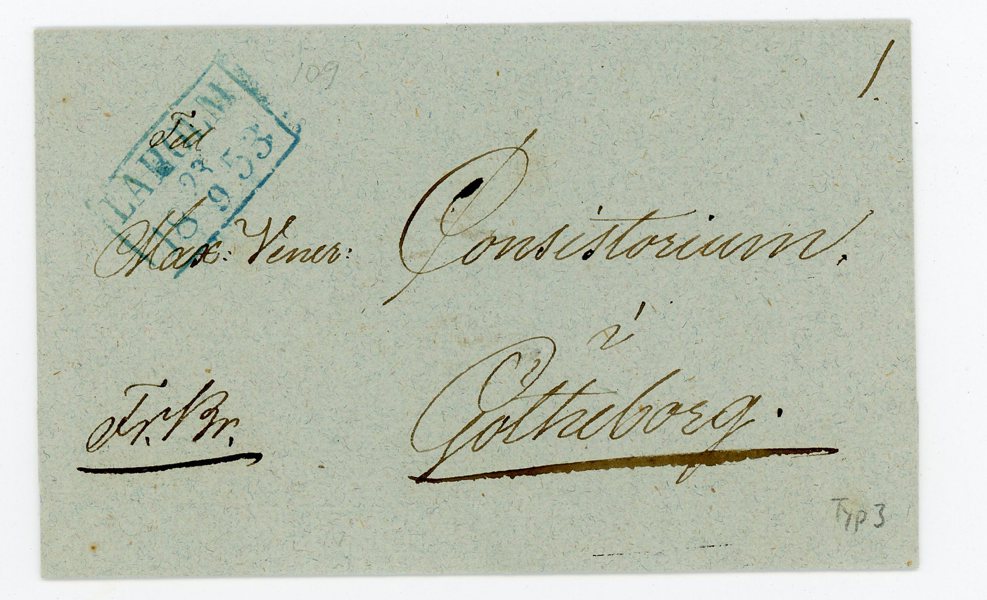 109
1.
LAHGEM
23
18 9 53
Till
Max: Vener: Consistorium.
i
Götheborg.
Fr. Br.
Typ 3